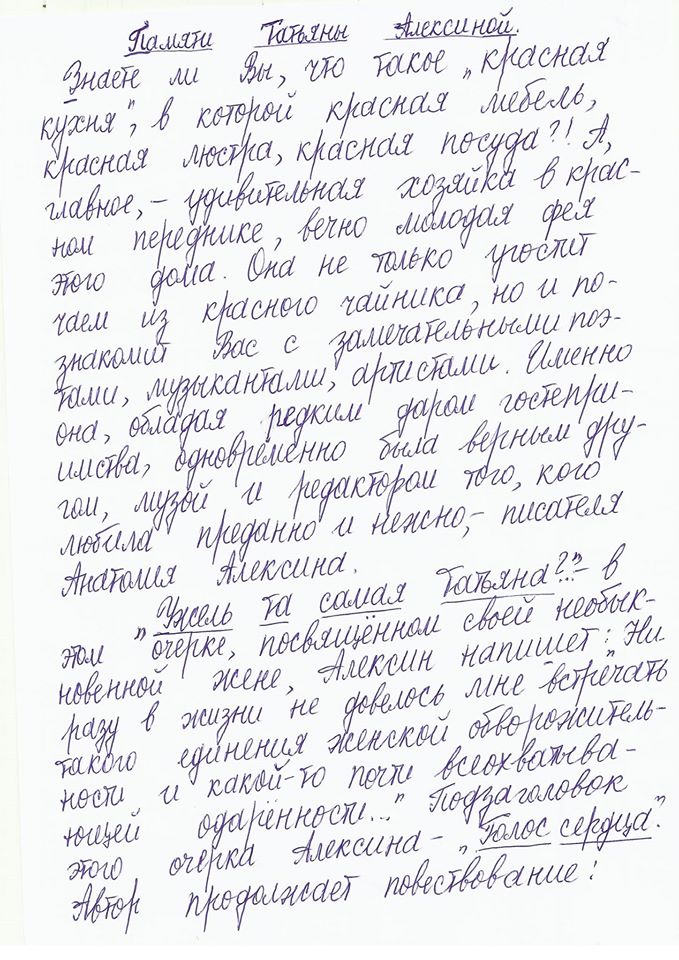 Памяти Татьяны Алексиной.
Знаете ли Вы, что такое „красная
кухня", в которой красная мебель,
красная люстра, красная посуда?! А,
главное, – удивительная хозяйка в крас-
ном переднике, вечно молодая фея
этого дома. Она не только угостит
чаем из красного чайника, но и по-
знакомит Вас с замечательными поэ-
тами, музыкантами, артистами. Именно
она, обладая редким даром гостепри-
имства, одновременно была верным дру-
гом, музой и редактором того, кого
любила преданно и нежно, – писателя
Анатолия Алексина.
"Ужель та самая Татьяна?..." – в
этом очерке, посвящённом своей необык-
новенной жене, Алексин напишет: "Ни
разу в жизни не довелось мне встречать
такого единения женской обворожитель-
ности и какой-то почти всеохватыва-
ющей одарённости..." Подзаголовок
этого очерка Алексина – „Голос сердца".
Автор продолжает повествование: